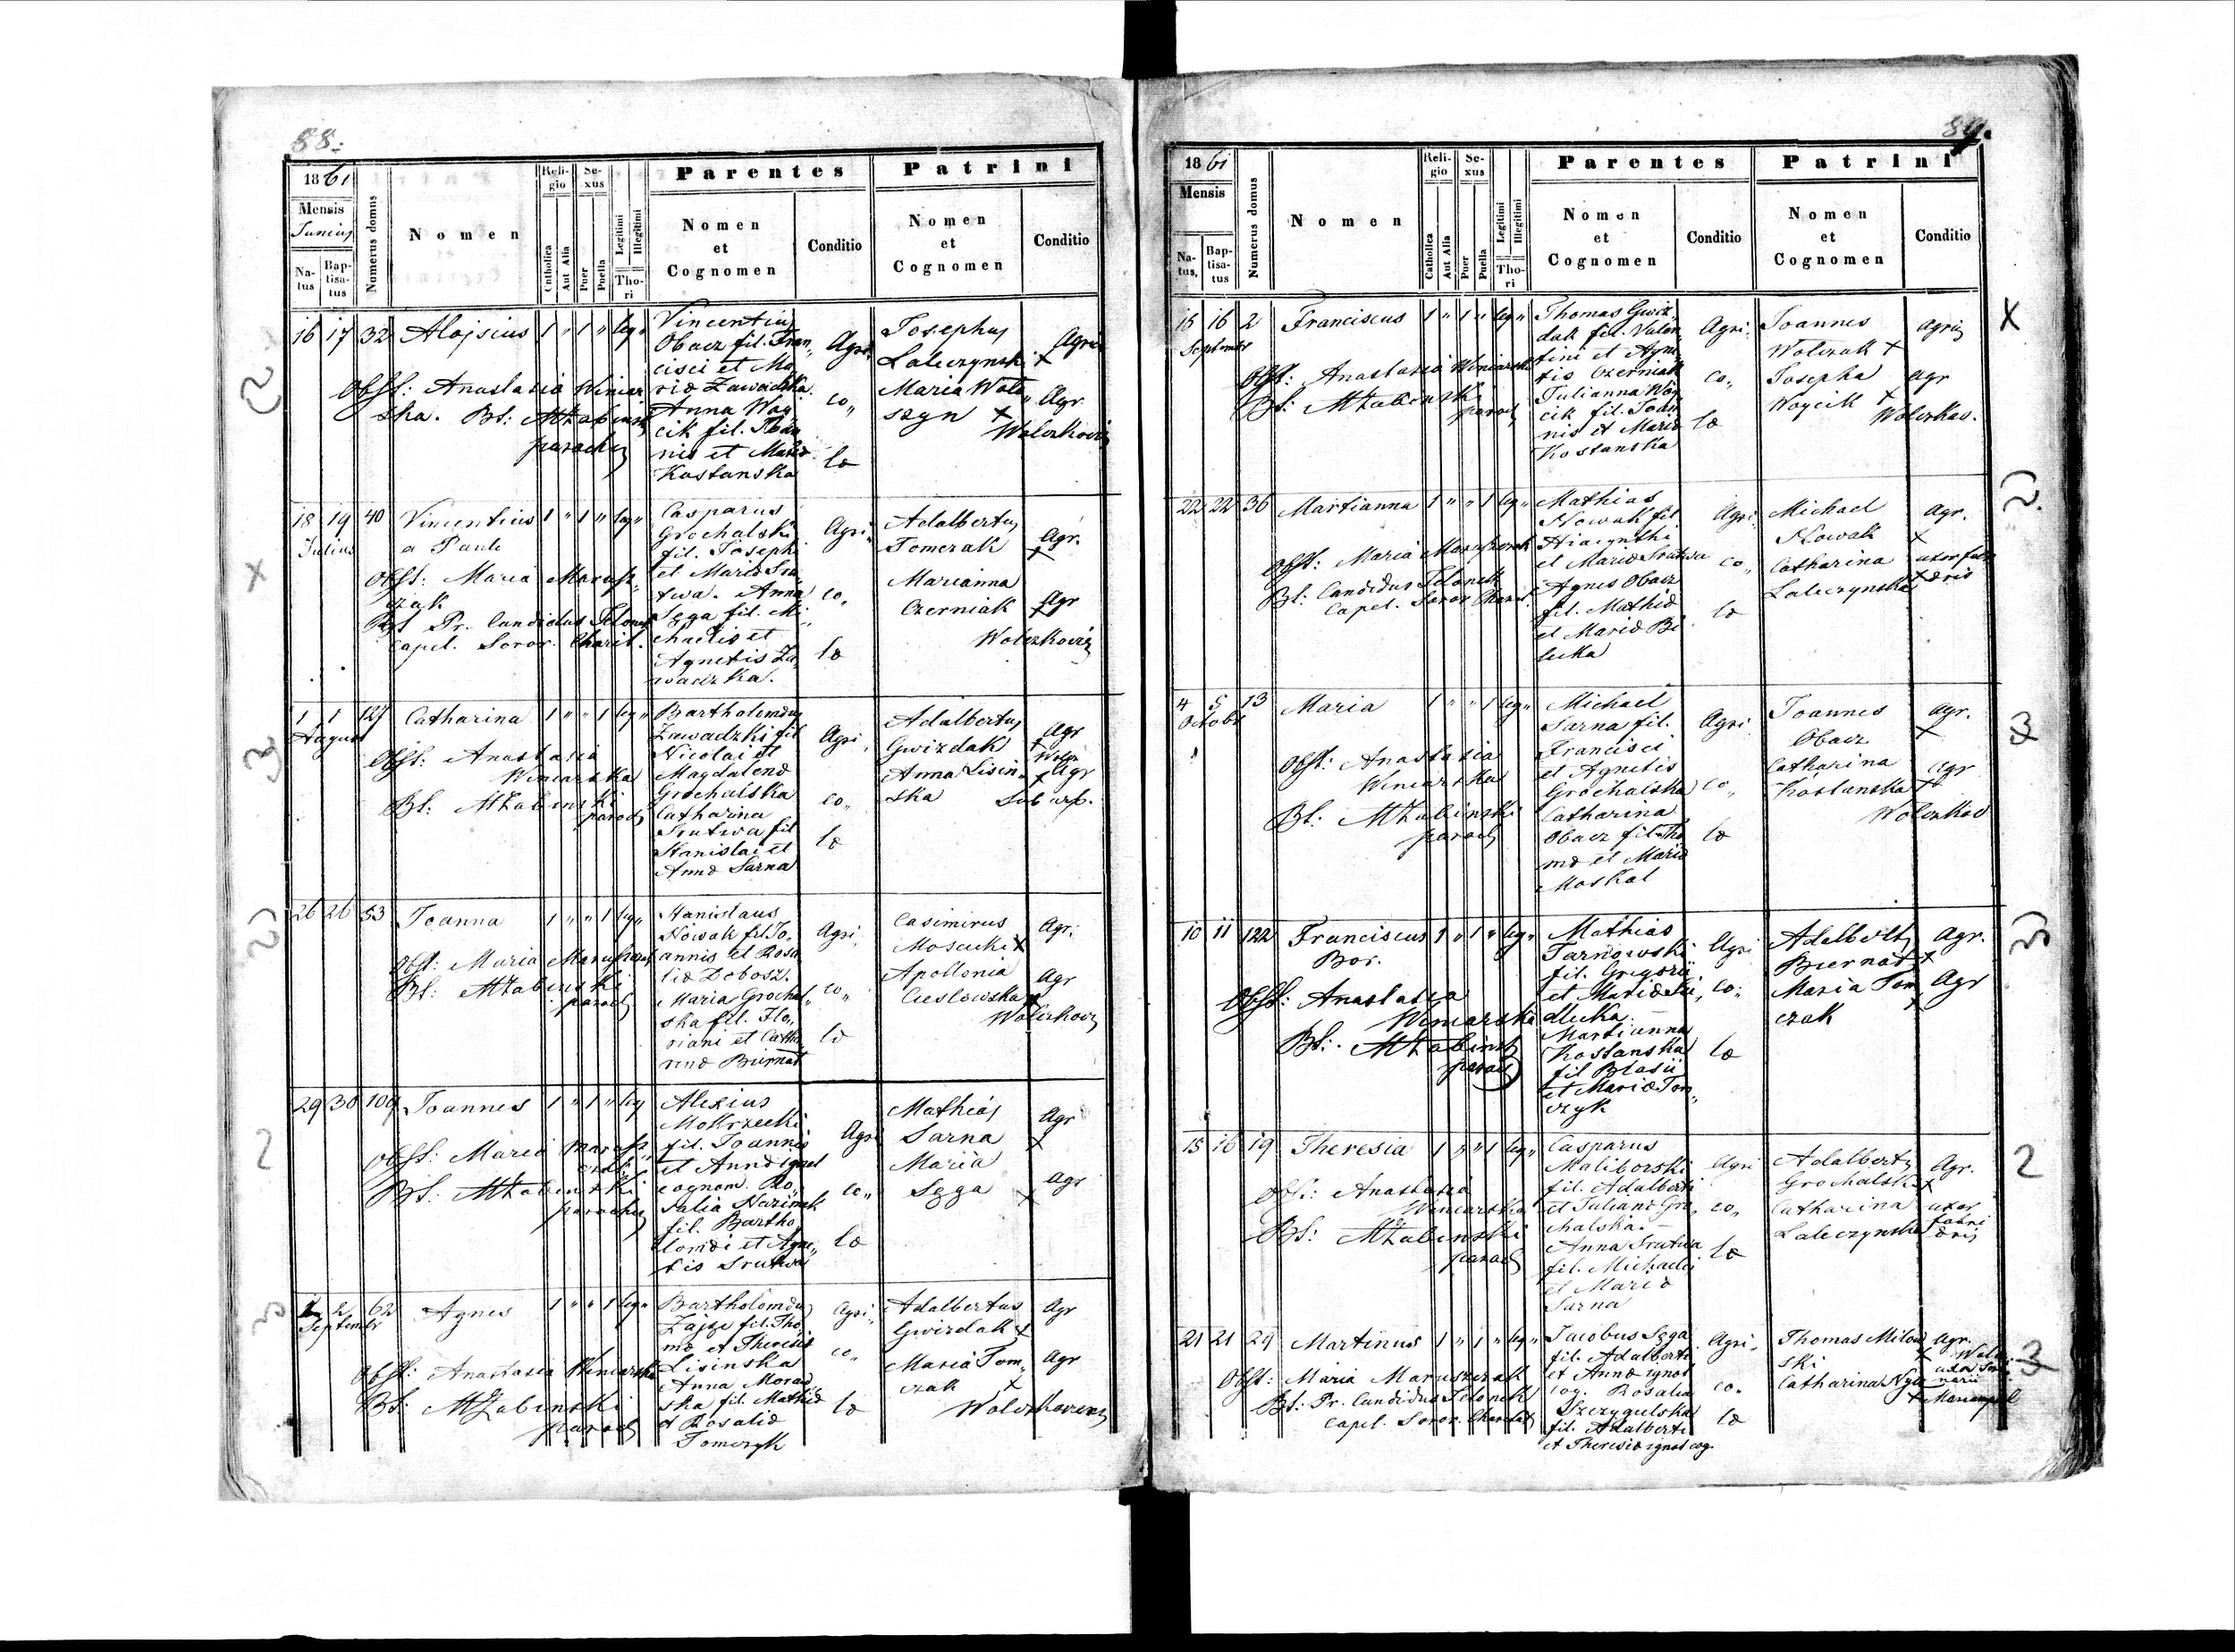 88.
1861
Mensis
Junius
Natus
Baptisatus
Numerus domus
Nomen
Religio
Catholica
Aut Alia
Sexus
Puer
Puella
Legitimi
Illegitimi
Thori
Parentes
Nomen
et
Cognomen
Conditio
Patrini
Nomen
et
Cognomen
Conditio
16 17 32 Alojsius 1 " 1 " leg "
Obst: Anastasia Winiar
ska. Bt:
parochus
Vincentius
Obacz fil. Fran
cisci et Ma
riæ Zawadzka
Anna Woy
cik fil. Joan
nis et Mariæ
Kostanska
Agri
co
læ
Josephus
Laleczynski +
Maria Wolo
szyn +
Agri
Agr
18 19 40 Vincentius 1 " 1 " leg "
Julius
a Paulo
Obst: Maria Marusz
czak
Bt Pr. Candidus
Capel. Soror. Charit.
Casparus
Grochalski
fil. Josephi
et Mariæ Sru
twa. Anna
Sęga fil. Mi
chaelis et
Agnetis Za
wadzka.
Agri
co
læ
Adalbertus
Tomczak
Marianna
Czerniak
Agr.
+
Agr
+
1 1 127 Catharina 1 " " 1 leg "
August
Obst: Anastasia
Winiarska
Bt:
paroch
Bartholomæus
Zawadzki fil
Nicolai et
Magdalenæ
Grochalska
Catharina
Srutwa fil
Stanislai et
Annæ Sarna
Agri
co
læ
Adalbertus
Gwizdak
Anna Lisin
ska
Agr
+
Agr
26 26 53 Joanna 1 " " 1 leg "
Obst: Maria
Bt:
paroch
Stanislaus
Nowak fil Jo
annis et Rosa
liæ Dobosz.
Maria Grochal
ska fil. Flo
riani et Catha
rinæ Biernat
Agri
co
læ
Casimirus
Apollonia
Cieslowska +
Agr.
Agr
29 30 109 Joannes 1 " 1 " leg
Obst: Maria Marusz
czak
Bt:
parochus
Alexius
Mokrzecki
fil. Joannis
et Annæ ignot
cognom. Ro
salia Nazimek
fil. Bartho
lomæi et Agne
tis Srutwa
Agri
co
læ
Mathias
Sarna
Maria
Sęga
Agr
+
Agr
+
1 2 62 Agnes 1 " " 1 leg "
Septembr
Obst: Anastasia Winiarska
Bt:
paroch
Bartholomæus
Zając fil. Tho
mæ et Theresiæ
Lisinska
Anna Moraw
ska fil. Mathiæ
et Rosaliæ
Tomczyk
Agri
co
læ
Adalbertus
Gwizdak +
Maria Tom
czak +
Agr
Agr
89.
1861
Mensis
Natus,
Baptisatus
Numerus domus
Nomen
Religio
Catholica
Aut Alia
Sexus
Puer
Puella
Legitimi
Illegitimi
Thori
Parentes
Nomen
et
Cognomen
Conditio
Patrini
Nomen
et
Cognomen
Conditio
15 16 2 Franciscus 1 " 1 " leg "
Septembr
Obst: Anastasia Winiarska
Bt:
paroch
Thomas Gwiz
dak fil. Valen
tini et Agne
tis Czerniak
Julianna Woy
cik fil. Joan
nis et Mariæ
Kostanska
Agri
co
læ
Joannes
Wolczak +
Josepha
Woycik +
Agri
Agr
22 22 36 Martianna 1 " " 1 leg "
Obst: Maria Maruszczak
Bt: Candidus
Capel. Soror Charit.
Mathias
Nowak fil.
Hiacynthi
et Mariæ Srutwa
Agnes Obacz
fil. Mathiæ
et Mariæ Bi
lecka
Agri
co
læ
Michael
Nowak
Catharina
Laleczynska
Agr.
+
uxor
4 5 13 Maria 1 " " 1 leg "
Octobr
Obst: Anastasia
Winiarska
Bt:
paroch
Michael
Sarna fil.
Francisci
et Agnetis
Grochalska
Catharina
Obacz fil. Tho
mæ et Mariæ
Moskal
Agri
co
læ
Joannes
Obacz
Catharina
Kostanska
Agr.
+
Agr
+
10 11 122 Franciscus 1 " 1 " leg "
Bor.
Obst: Anastasia
Winiarska
Bt:
paroch
Mathias
Tarnowski
fil. Gregorii
et Mariæ Sie
dlecka.
Martianna
Kostanska
fil Blasii
et Mariæ Tom
czyk
Agri
co
læ
Adalbertus
Biernat +
Maria Tom
czak
Agr.
Agr
+
15 16 19 Theresia 1 " " 1 leg "
Obst: Anastasia
Winiarska
Bt:
paroch
Casparus
Maliborski
fil. Adalberti
et Julianæ Gro
chalska.
Anna Srutwa
fil. Michaelis
et Mariæ
Sarna
Agri
co
læ
Adalbertus
Grochalski +
Catharina
Laleczynska
Agr.
uxor
21 21 29 Martinus 1 " 1 " leg "
Obst: Maria Maruszczak
Bt: Pr. Candidus
Capel. Soror. Charitat
Jacobus Sęga
fil. Adalberti
et Annæ ignot
cog. Rosalia
Szczygulska
fil. Adalberti
et Theresiæ ignot cog.
Agri
co
læ
Thomas
ski
Catharina
Agr.
+
Mariampol